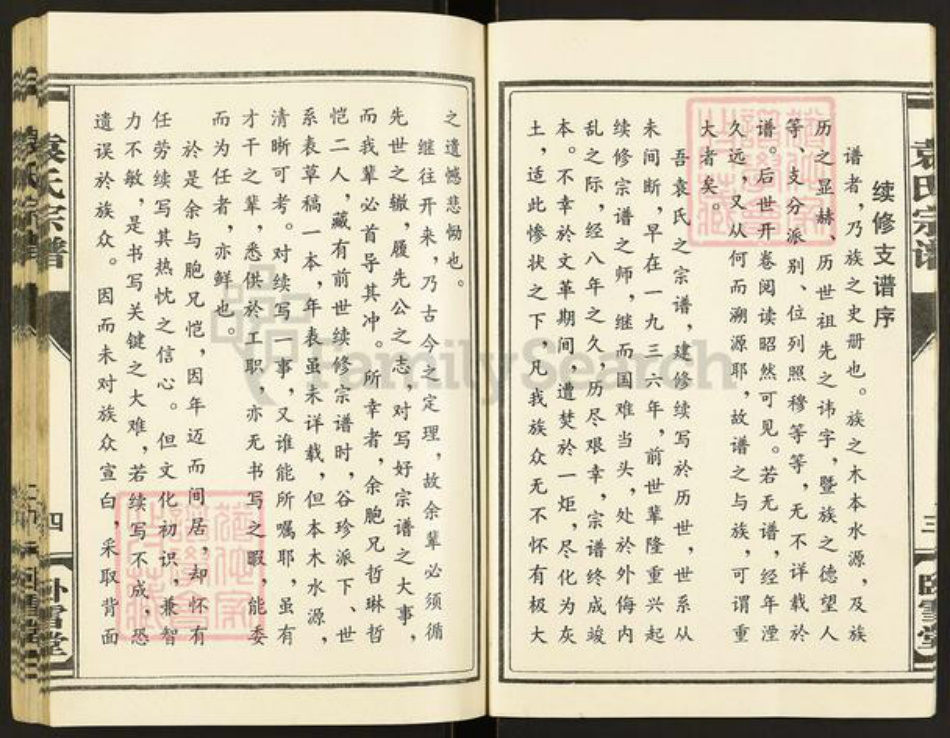 续修支谱序
谱者，乃族之史册也。族之木本水源，及族
历之显赫、历世祖先之讳字，暨族之德望人
等、支分派别、位列照穆等等，无不详载於
谱。后世开卷阅读昭然可见。若无谱，经年湮
久远，又从何而溯源耶，故谱之与族，可谓重
大者矣。
吾袁氏之宗谱，建修续写於历世，世系从
未间断，早在一九三六年，前世辈隆重兴起
续修宗谱之师，继而国难当头，处於外侮内
乱之际，经八年之久，历尽艰幸，宗谱终成竣
本。不幸於文革期间，遭焚於一炬，尽化为灰
土，适此惨状之下，凡我族众无不怀有极大
袁氏宗谱
三
卧雪堂
之遗憾悲恸也。
继往开来，乃古今之定理，故余辈必须循
先世之辙，履先公之志，对写好宗谱之大事，
而我辈必首导其冲。所幸者，余胞兄哲琳哲
恺二人，藏有前世续修宗谱时，谷珍派下、世
系表草稿一本，年表虽未详载，但本木水源，
清晰可考。对续写一事，又谁能所嘱耶，虽有
才干之辈，悉供於工职，亦无书写之暇，能委
而为任者，亦鲜也。
於是余与胞兄恺，因年迈而间居，却怀有
任劳续写其热忱之信心。但文化初识，兼智
力不敏，是书写关键之大难，若续写不成，恐
遗误於族众。因而未对族众宣白，采取背面
袁氏宗谱
四
卧雪堂
FamilySearch